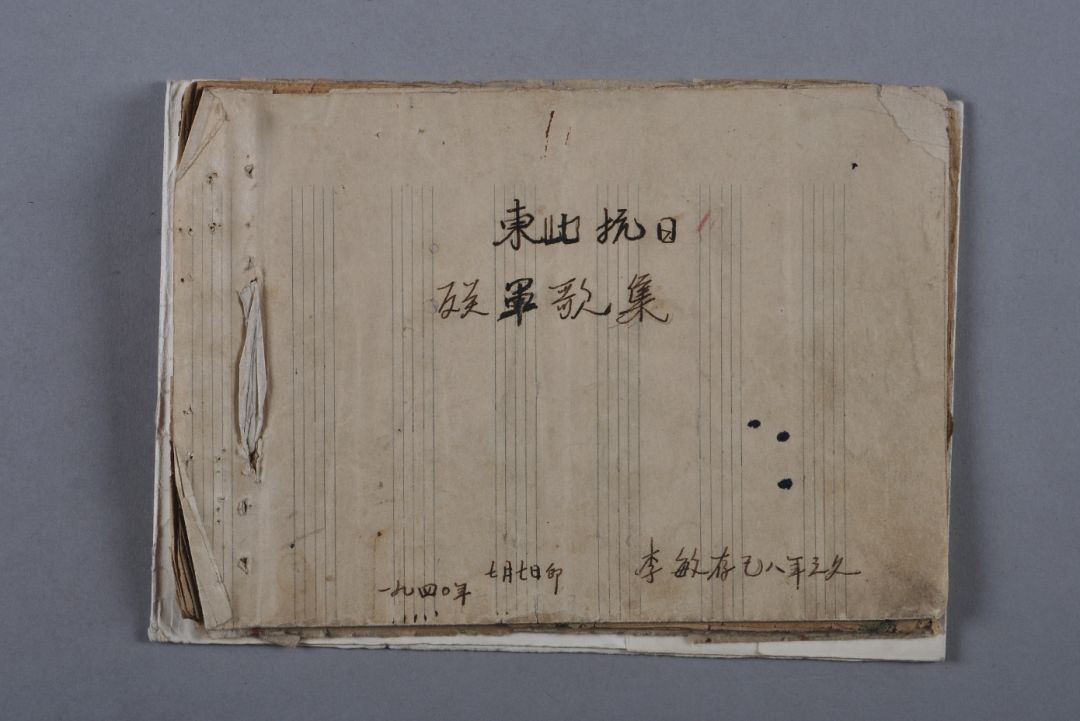 東北抗日
联軍歌集
一九四〇年
七月七日印
李敏存已八年之久